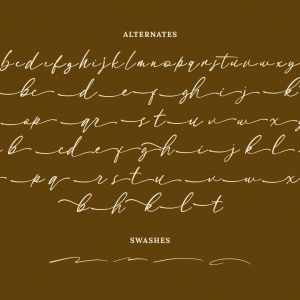 ALTERNATES
bcdefghijklmnopqrstuvwxy
bc d e f g h i j k
op qr s t u v w x
b cd e f g h i j k l
p q r s t u v w x
b h k l t
SWASHES